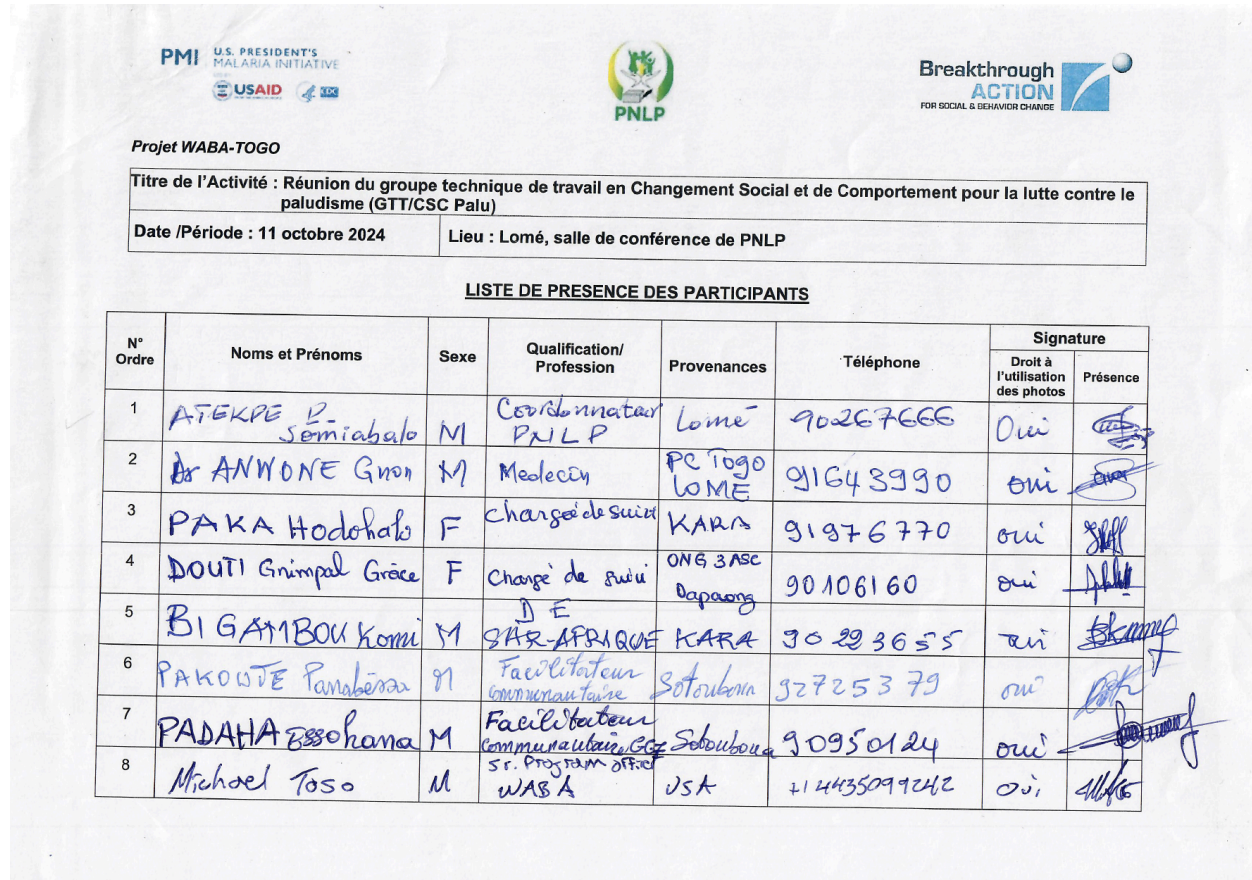 PMI U.S. PRESIDENT'S
MALARIA INITIATIVE
USAID CDC
PNLP
Breakthrough
ACTION
FOR SOCIAL & BEHAVIOR CHANGE
Projet WABA-TOGO
Titre de l'Activité : Réunion du groupe technique de travail en Changement Social et de Comportement pour la lutte contre le
paludisme (GTT/CSC Palu)
Date /Période : 11 octobre 2024 Lieu : Lomé, salle de conférence de PNLP
LISTE DE PRESENCE DES PARTICIPANTS
N° Ordre Noms et Prénoms Sexe Qualification/ Profession Provenances Téléphone Signature
Droit à l'utilisation des photos Présence
1 ATEKPE P. Somiabalo M Coordonnateur PNLP Lomé 90267666 Oui
2 Dr ANWONE Gnon M Medecin PC Togo LOME 91643990 oui
3 PAKA Hodohalo F chargée de suivi KARA 91976770 oui
4 DOUTI Gnimpal Grâce F Chargé de suivi ONG 3ASC Dapaong 90106160 oui
5 BIGAMBOU Komi M DE SAR-AFRIQUE KARA 90223655 oui
6 PAKOUTE Panabéssa M Facilitateur communautaire Sotouboua 92725379 oui
7 PADAHA Essohana M Facilitateur communautaire Sotouboua 90950124 oui
8 Michael Toso M Sr. Program officer WABA USA +14435099242 Oui